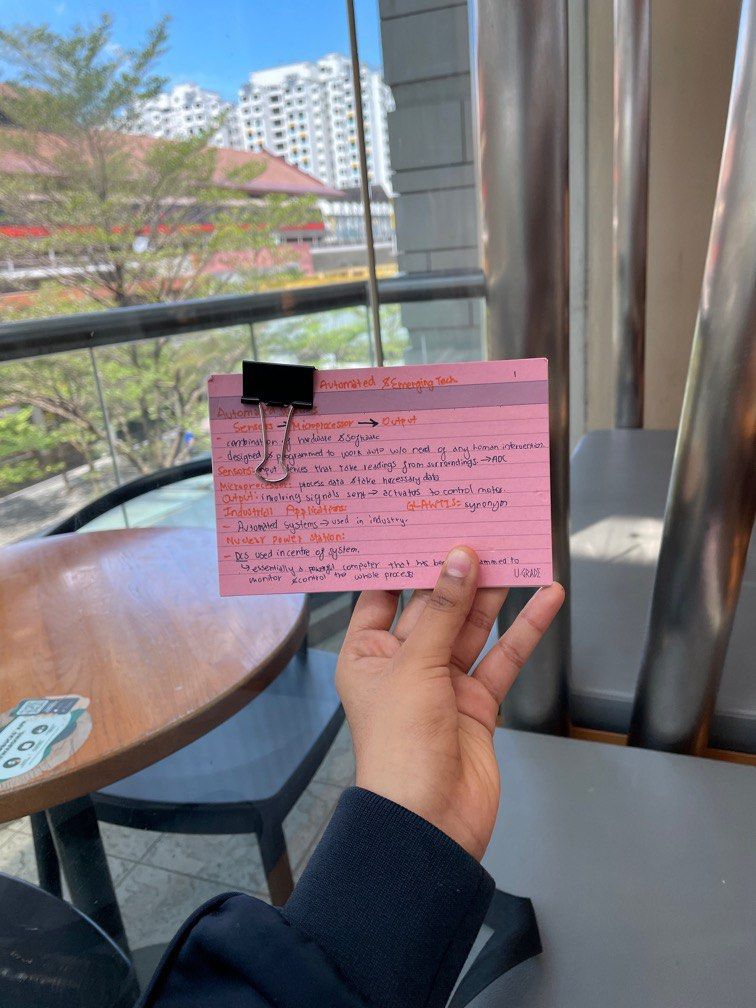 Automated & Emerging Tech.
1
Sensors → Microprocessor → Output
- combination of hardware & software
- designed & programmed to work auto w/o need of any human intervention
Sensors: input devices that take readings from surroundings. → ADC
Microprocessor: process data & take necessary data
Output: involving signals sent → actuators to control motor.
Industrial Applications:
GLAWTIS: synonym
- Automated Systems → used in industry.
Nuclear power station:
- DCS used in centre of system.
↳ essentially a powerful computer that has been programmed to
monitor & control the whole process
U-GRADE